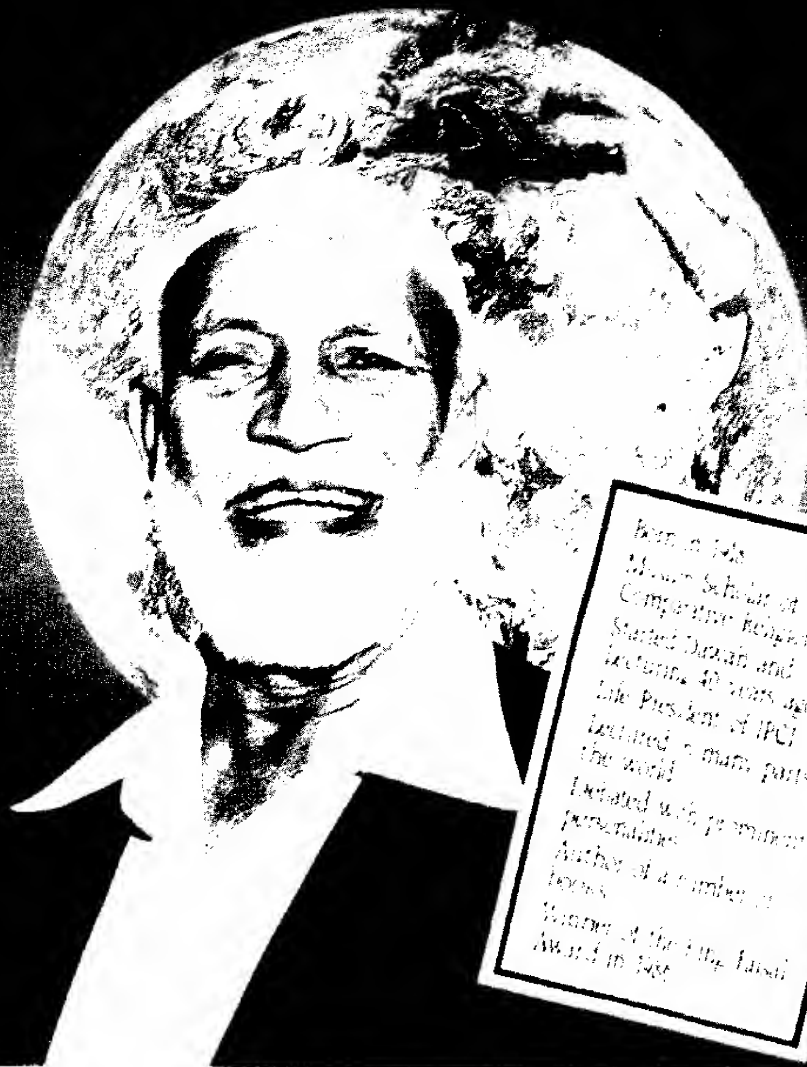 Born in
Muslim Scholar of
Comparative
Started Dawah and
lecturing 40 years
Life President of IPCI
Lectured in many
the world
Debated with prominent
personalities
Author of a number of
books
Winner of the King Faisal
Award in